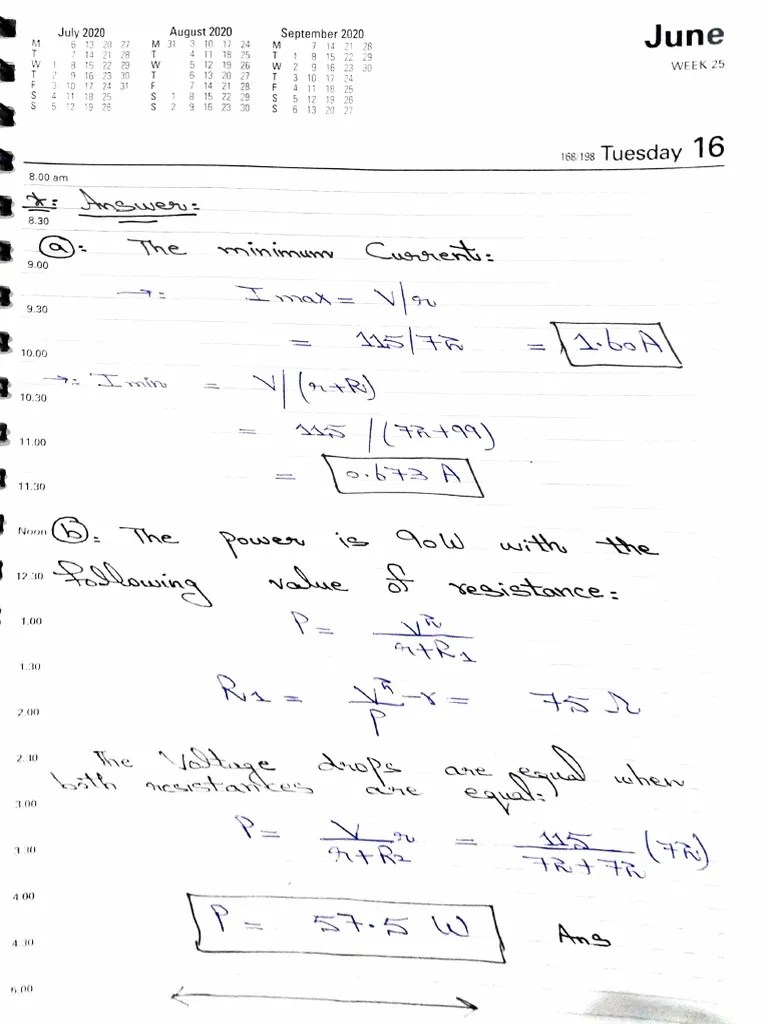 July 2020 August 2020 September 2020
M 6 13 20 27 M 31 3 10 17 24 M 7 14 21 28
T 7 14 21 28 T 4 11 18 25 T 1 8 15 22 29
W 1 8 15 22 29 W 5 12 19 26 W 2 9 16 23 30
T 2 9 16 23 30 T 6 13 20 27 T 3 10 17 24
F 3 10 17 24 31 F 7 14 21 28 F 4 11 18 25
S 4 11 18 25 S 1 8 15 22 29 S 5 12 19 26
S 5 12 19 26 S 2 9 16 23 30 S 6 13 20 27
June
WEEK 25
168/198 Tuesday 16
8.00 am
Answer:
8.30
(a): The minimum Current:
9.00
→: I max = V/r
9.30
= 115/72 = 1.60A
10.00
→: I min = V/(r+R)
10.30
= 115 /(72+99)
11.00
= 0.673 A
11.30
Noon (b): The power is 90W with the
12.30 following value of resistance:
1.00 P = V²/r+R1
1.30
R1 = V²/P - r = 75 Ω
2.00
2.30 The Voltage drops are equal when
both resistances are equal:
3.00
P = V/r+R2 r = 115/72+72 (72)
3.30
4.00
P = 57.5 W Ans
4.30
5.00